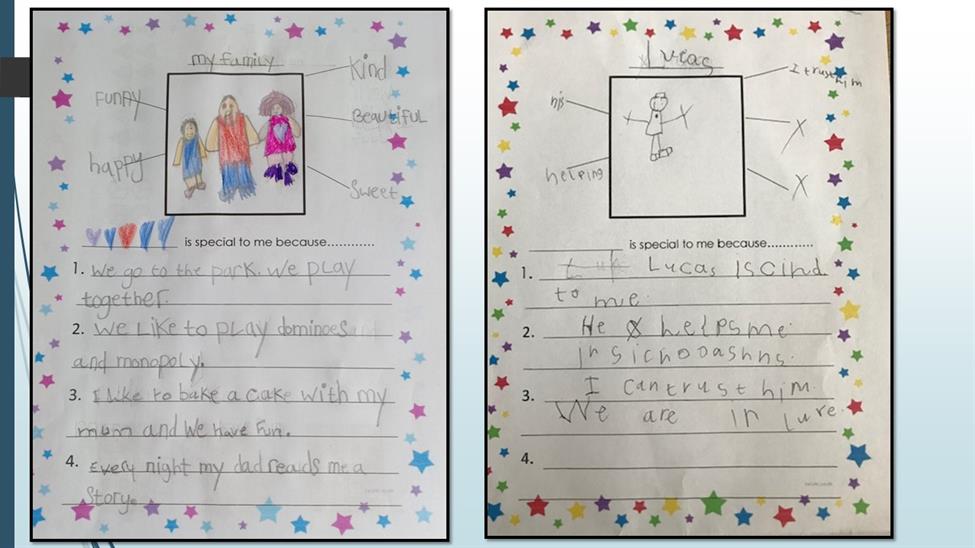 my family
Kind
FUNNY
BEAUTIFUL
happy
Sweet
is special to me because............
1. We go to the park. We play
together.
2. We Like to play dominoes
and monopoly.
3. I like to bake a cake with my
mum and we have fun.
4. Every night my dad reads me a
Story.
I trust him
his
X
helping
X
is special to me because............
1. Lucas is cind
to me.
2. He helps me
in sichooashns.
3. I can trust him.
We are in luve.
4.